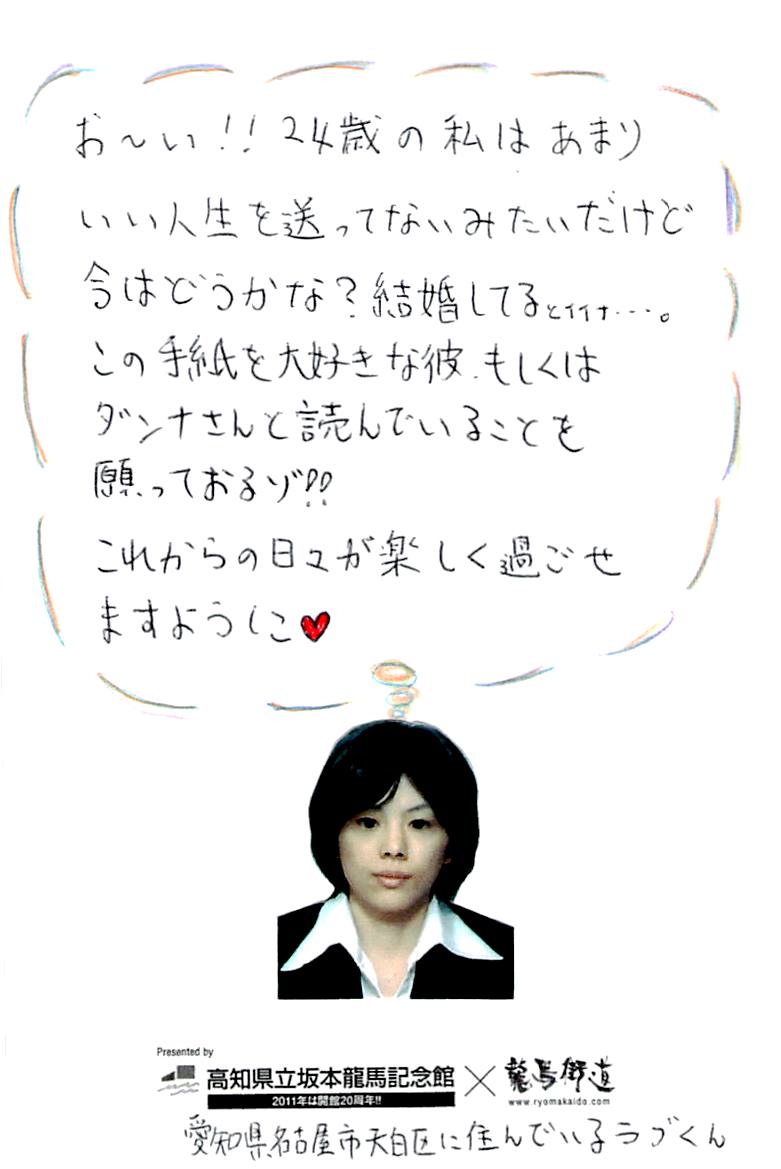 お〜い!! 24歳の私はあまり
いい人生を送ってないみたいだけど
今はどうかな?結婚してるとイイナ…。
この手紙を大好きな彼、もしくは
ダンナさんと読んでいることを
願っておるゾ!!
これからの日々が楽しく過ごせ
ますように♥
Presented by
高知県立坂本龍馬記念館×龍馬街道
2011年は開館20周年!!
www.ryomakaido.com
愛知県名古屋市天白区に住んでいるラブくん